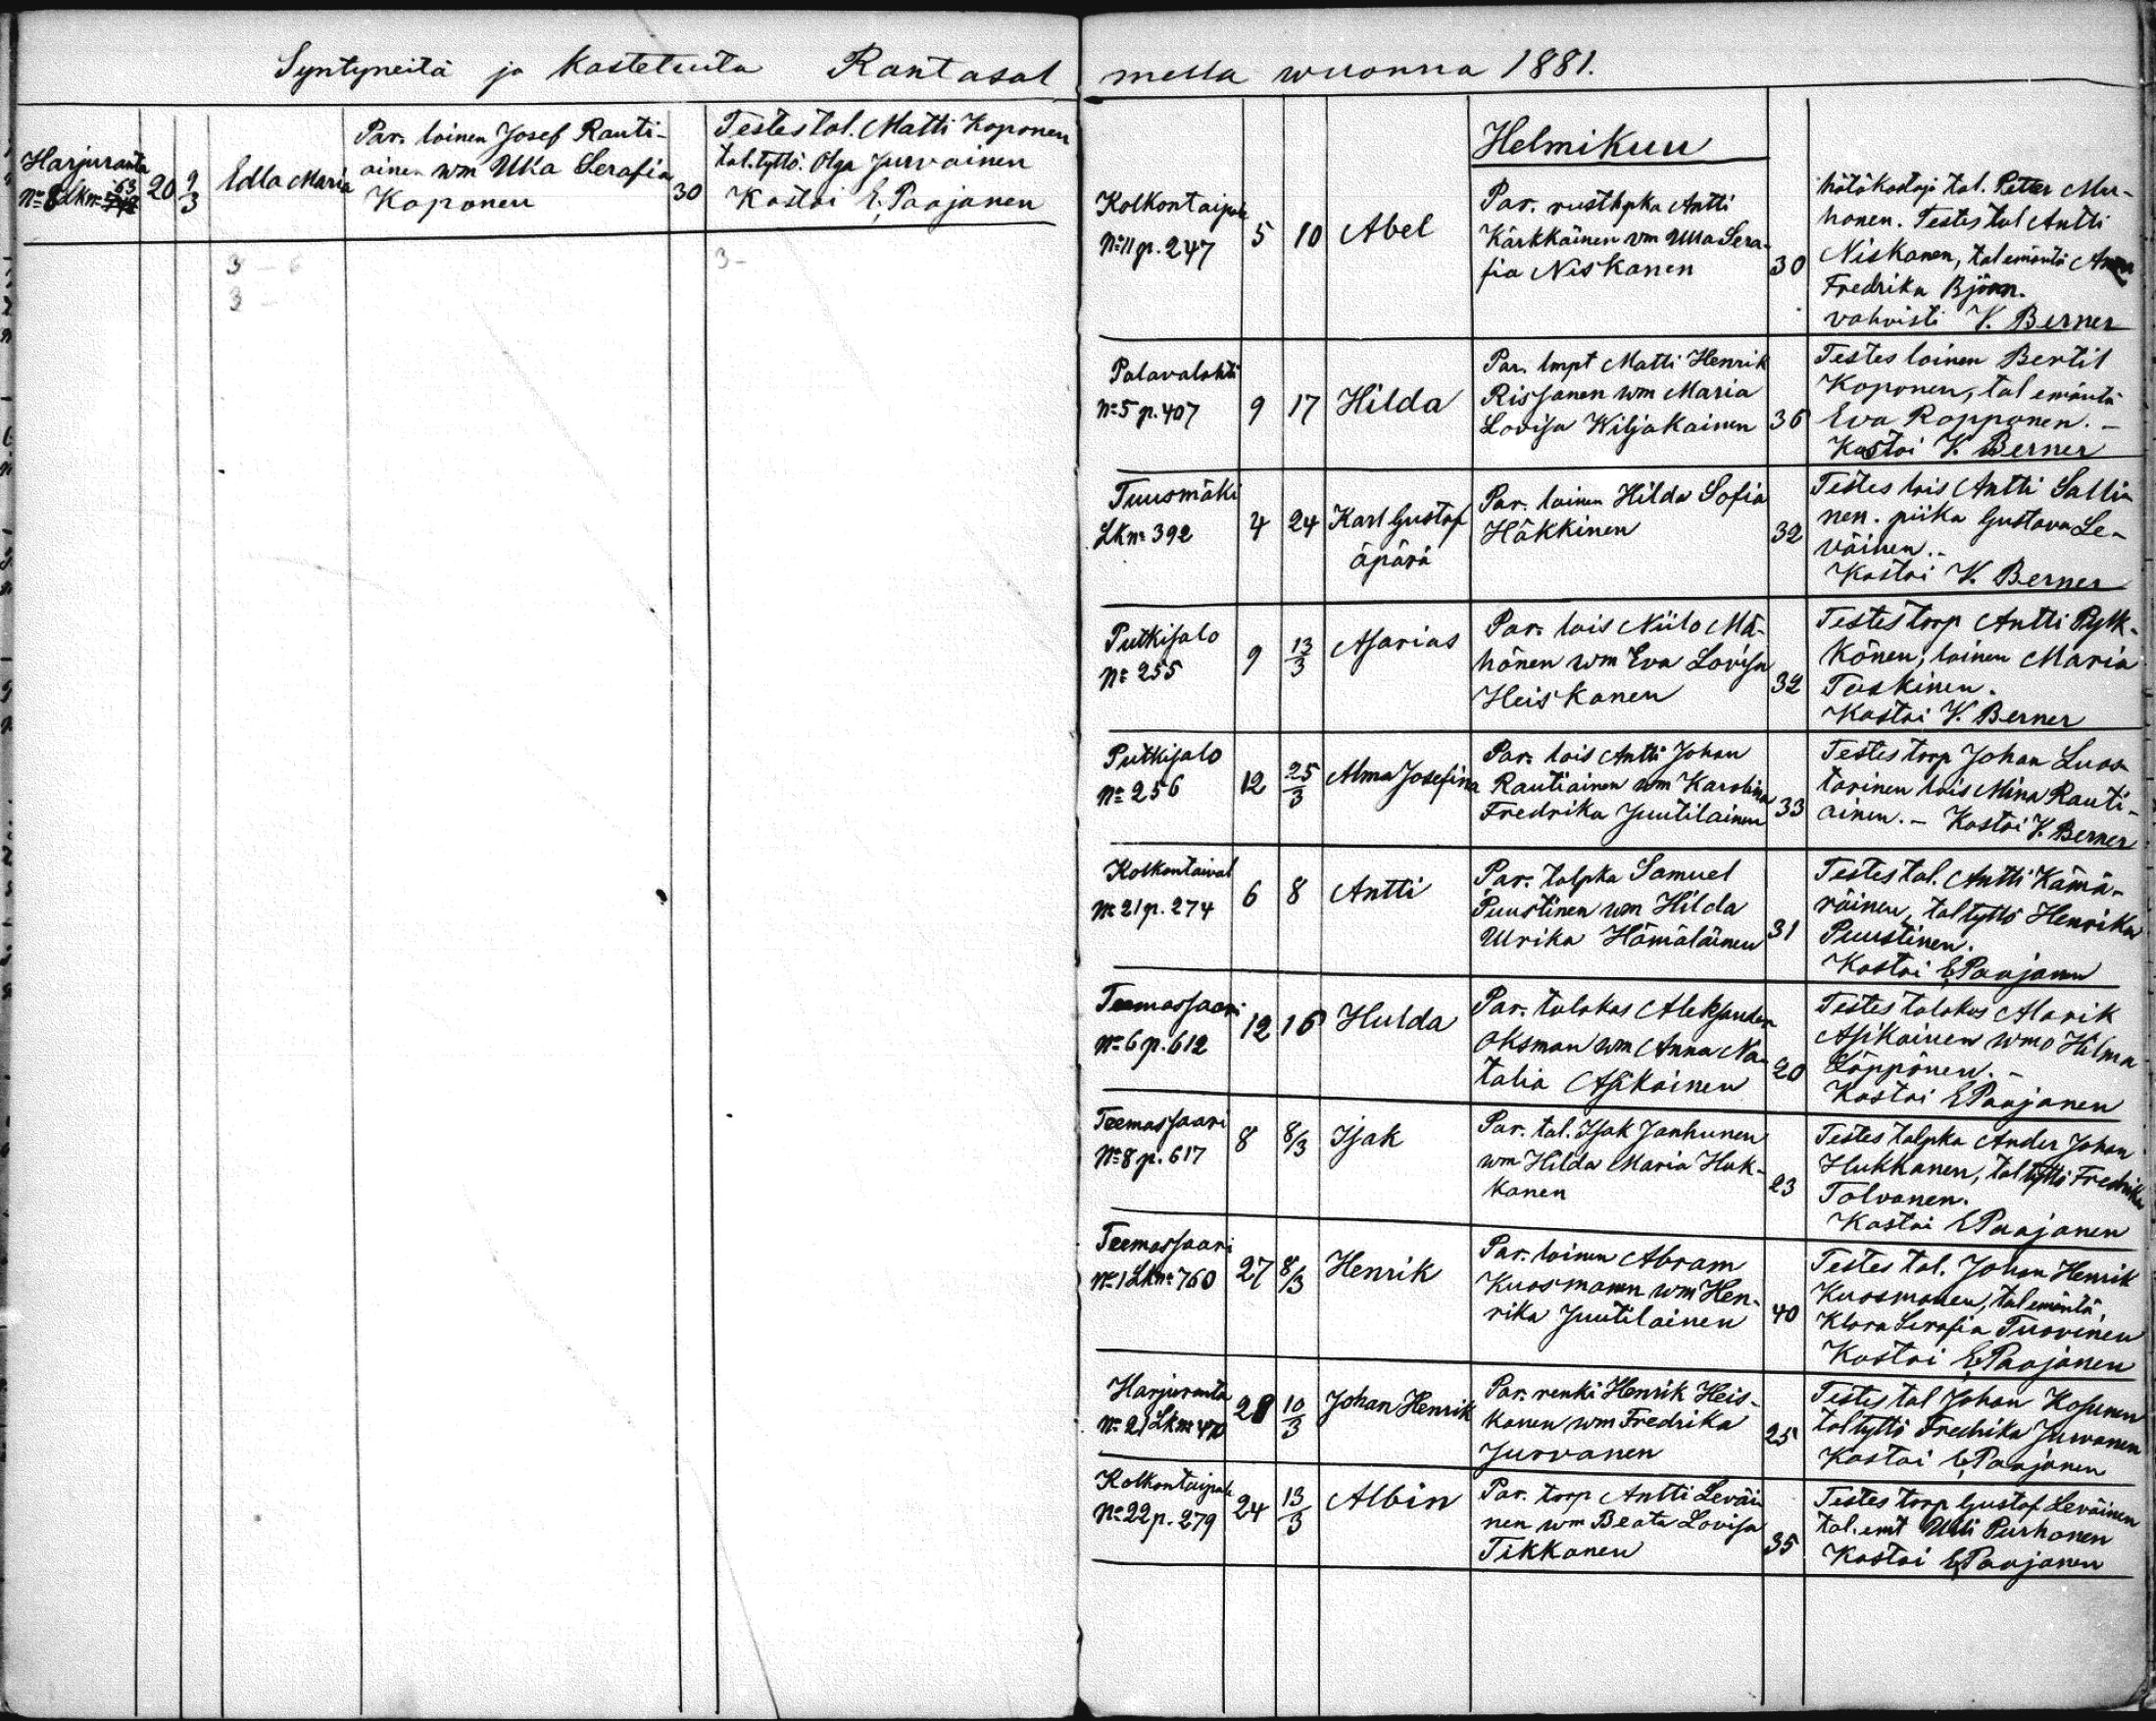 Syntyneitä ja kastetuita Rantasal
Harjuranta
No 8 Lkno 63
20
9/3
Edla Maria
Par. loinen Josef Rauti-
ainen wm Ulla Serafia
Koponen
30
Testes tal. Matti Koponen
tal. tyttö. Olga Jurvainen
Kastoi E. Paajanen
3 - 6
3 -
3 -
messa wuonna 1881.
Helmikuu
Kolkontaipale
No 11 p. 247
5
10
Abel
Par. rusthpka Antti
Kärkkäinen vm Ulla Sera-
fia Niskanen
30
hätäkastaja tal. Peter Mu-
honen. Testes tal Antti
Niskanen, tal emäntä Anna
Fredrika Björn.
vahvisti V. Berner
Palavalahti
No 5 p. 407
9
17
Hilda
Par. lmpt Matti Henrik
Rissanen wm Maria
Lovisa Wiljakainen
36
Testes loinen Bertil
Koponen, tal emäntä
Eva Ropponen. -
Kastoi V. Berner
Tuusmäki
Lkno 392
4
24
Karl Gustaf
äpärä
Par. loinen Hilda Sofia
Häkkinen
32
Testes lois Antti Salli
nen. piika Gustava Le-
väinen. -
Kastoi V. Berner
Putkisalo
No 255
9
13/3
Asarias
Par. lois Niilo Mä-
hönen wm Eva Lovisa
Heiskanen
32
Testes torp Antti Pylk-
könen, loinen Maria
Tuskinen.
Kastoi V. Berner
Putkisalo
No 256
12
25/3
Alma Josefina
Par. lois Antti Johan
Rautiainen wm Karolina
Fredrika Juutilainen
33
Testes torp Johan Luos
tarinen lois Mina Rauti-
ainen. - Kastoi V. Berner
Kolkontaival
No 21 p. 274
6
8
Antti
Par. talpka Samuel
Puustinen wm Hilda
Ulrika Hämäläinen
31
Testes tal. Antti Kämä-
räinen, tal tyttö Henrika
Puustinen.
Kastoi E. Paajanen
Teemassaari
No 6 p. 612
12
16
Hulda
Par. talokas Aleksander
Oksman wm Anna Na-
talia Asikainen
20
Testes talokas Alarik
Asikainen wmo Hilma
Löppönen. -
Kastoi E Paajanen
Teemassaari
No 8 p. 617
8
8/3
Isak
Par. tal. Isak Janhunen
wm Hilda Maria Huk-
kanen
23
Testes talpka Ander Johan
Hukkanen, tal tyttö Fredrika
Tolvanen.
Kastoi E Paajanen
Teemassaari
No 1 Lkno 760
27
8/3
Henrik
Par. loinen Abram
Kuosmanen wm Hen-
rika Juutilainen
40
Testes tal. Johan Henrik
Kuosmanen, tal emäntä
Klara Serafia Tuovinen
Kastoi E. Paajanen
Harjuranta
No 21 Lkno 470
28
10/3
Johan Henrik
Par. renki Henrik Heis-
kanen wm Fredrika
Jurvanen
25
Testes tal Johan Kosunen
tal tyttö Fredrika Jurvanen
Kastoi E. Paajanen
Kolkontaipale
No 22 p. 279
24
13/3
Albin
Par. torp Antti Leväi
nen wm Beata Lovisa
Tikkanen
35
Testes torp Gustaf Leväinen
tal. emt Ulli Purhonen
Kastoi E. Paajanen